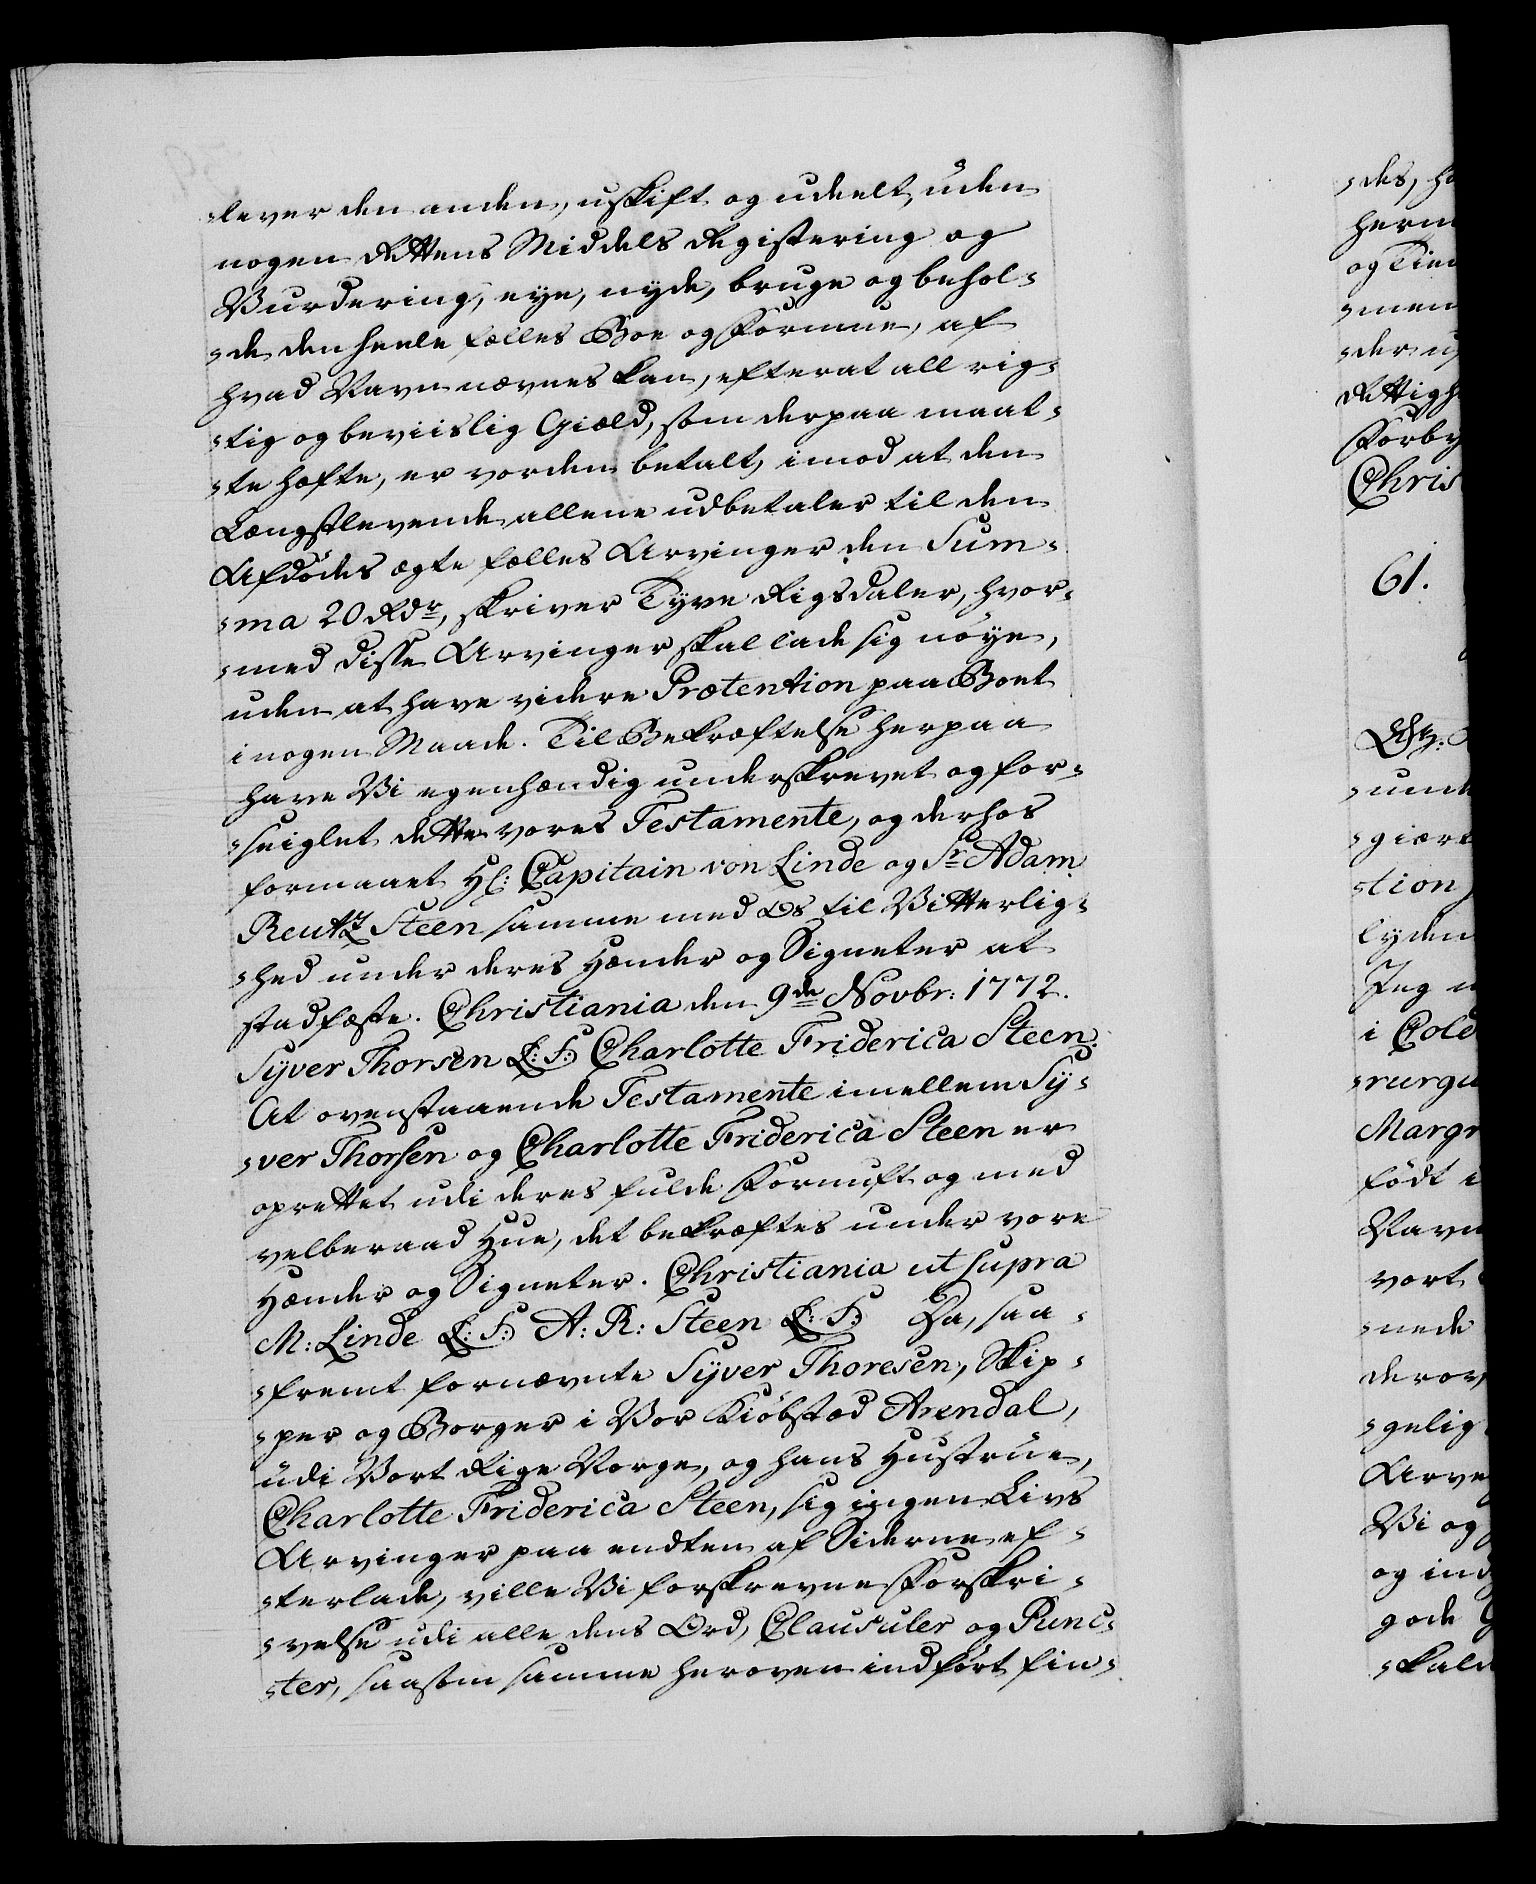 :lever den anden, uskift og udeelt, uden
nogen Rettens Middels Registering og
Vurdering, eye, nyde, bruge og behol:
:de den heele fælles Boe og Formue, af
hvad Navn nævnes kan, efterat all rig:
:tig og beviislig Giæld, som derpaa maat:
:te hæfte, er vorden betalt, imod at den
Længstlevende allene udbetaler til den
Afdödes ægte fælles Arvinger den Sum:
:ma 20 Rdr, skriver Tyve Rigsdaler, hvor:
:med disse Arvinger skal lade sig nöye,
uden at have videre Prætention paa Boet
i nogen Maade. Til Bekræftelse herpaa
have Vi egenhændig underskrevet og for:
:seiglet dette vores Testamente, og derhos
formaaet Hl: Capitain von Linde og Sr Adam
Reutz Steen samme med Os til Vitterlig:
:hed under deres Hænder og Signeter at
stadfæste. Christiania den 9de Novbr: 1772.
Syver Thorsen L:S: Charlotte Friderica Steen.
At ovenstaaende Testamente imellem Sy:
:ver Thorsen og Charlotte Friderica Steen er
oprettet udi deres fulde Fornuft og med
velberaad Hue, det bekræftes under vore
Hænder og Signeter. Christiania ut supra
M: Linde L:S: A: R: Steen L:S: Da, saa:
:fremt fornævnte Syver Thoresen, Skip:
:per og Borger i Vor Kiöbstæd Arendal,
udi Vort Rige Norge, og hans Hustrue,
Charlotte Friderica Steen, sig ingen Livs
Arvinger paa endten af Siderne ef:
:terlade, ville Vi forskrevne Forskri:
:velse udi alle dens Ord, Clausuler og Punc:
:ter, saasom samme heroven indfört fin:
:des,
og
:men
Chris
61.
:unde
:tion
lyden
Jeg
i Cold
Margr
födt
Navn
vort
:nede
:gelig
Arve
Vi og
og ind
gode